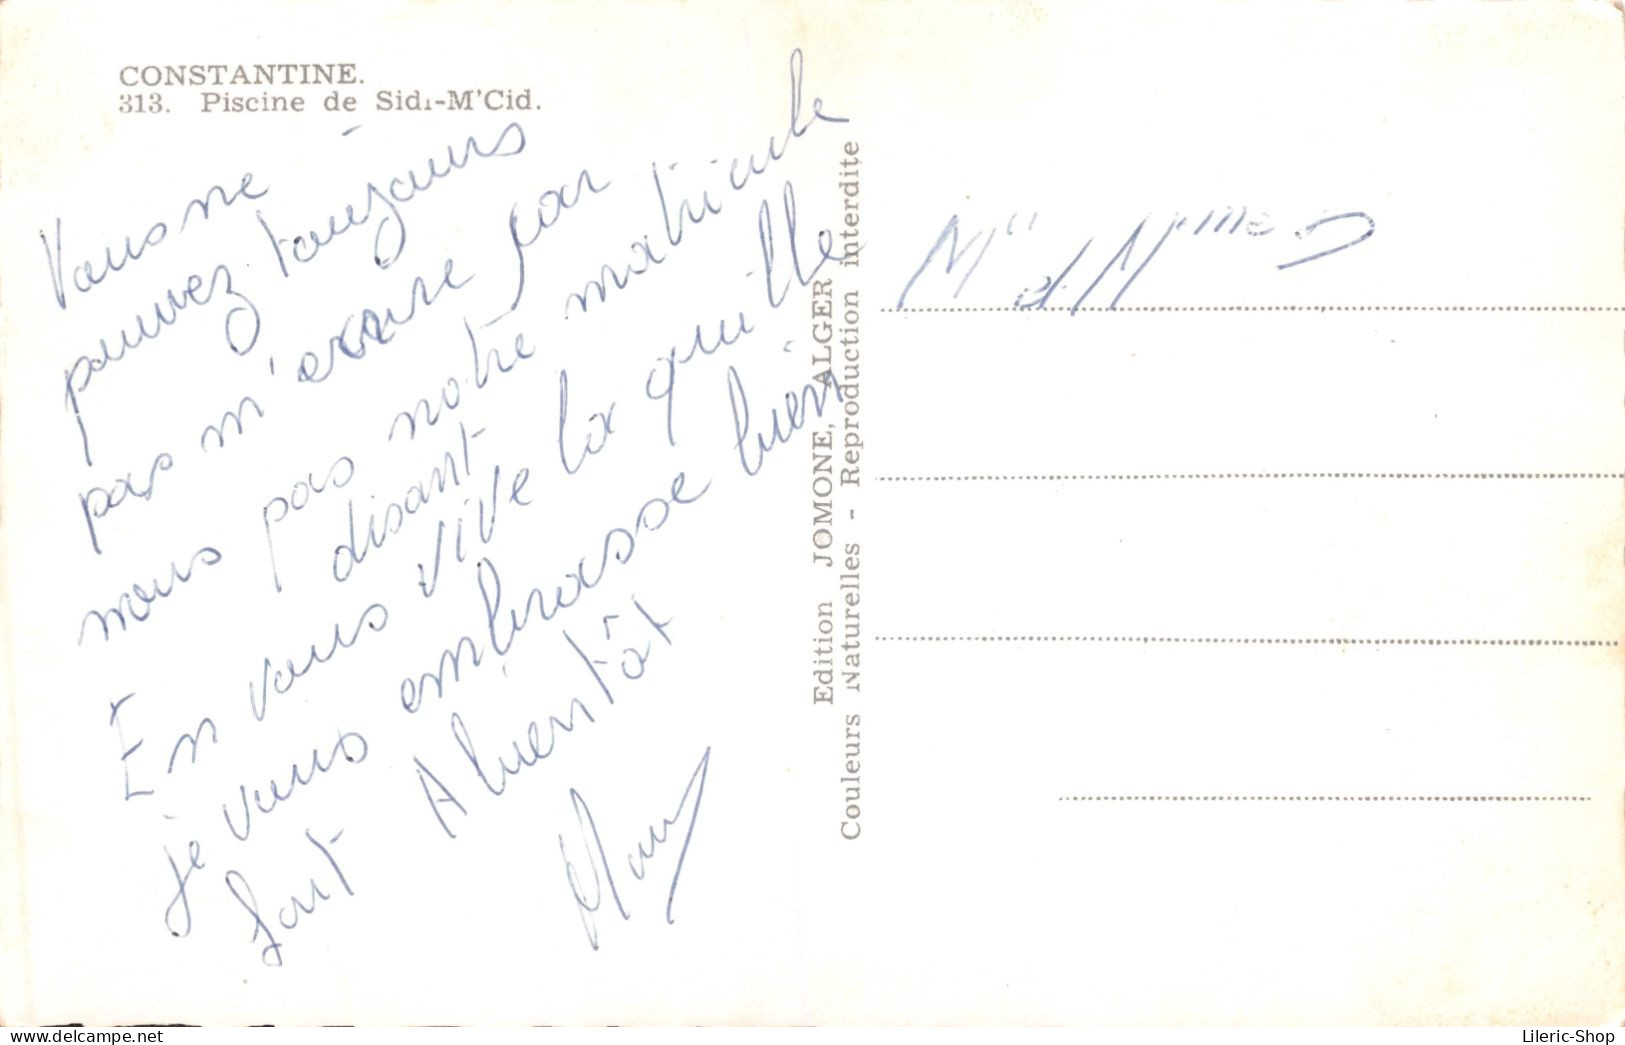 CONSTANTINE.
313. Piscine de Sidi-M'Cid.
Vous ne
pouvez toujours
pas m'ecrire car
nous pas notre matricule
En vous disant vive la quille
je vous embrasse bien
fort A bientôt
Edition JOMONE, ALGER
Couleurs Naturelles - Reproduction interdite
Mr et Mme
Lileric-Shop